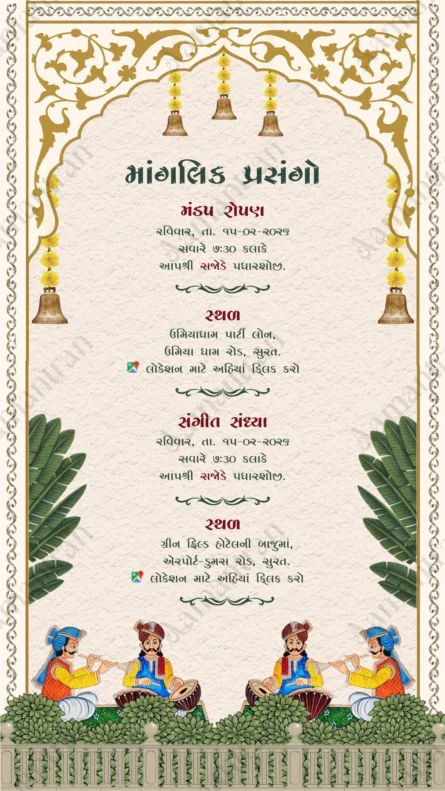 માંગલિક પ્રસંગો
મંડપ રોપણ
રવિવાર, તા. ૧૫-૦૨-૨૦૨૬
સવારે ૭:૩૦ કલાકે
આપશ્રી સજોડે પધારશોજી.
સ્થળ
ઉમિયાધામ પાર્ટી લોન,
ઉમિયા ધામ રોડ, સુરત.
લોકેશન માટે અહિયાં ક્લિક કરો
સંગીત સંધ્યા
રવિવાર, તા. ૧૫-૦૨-૨૦૨૬
સવારે ૭:૩૦ કલાકે
આપશ્રી સજોડે પધારશોજી.
સ્થળ
ગ્રીન ફિલ્ડ હોટેલની બાજુમાં,
એરપોર્ટ-ડુમસ રોડ, સુરત.
લોકેશન માટે અહિયાં ક્લિક કરો